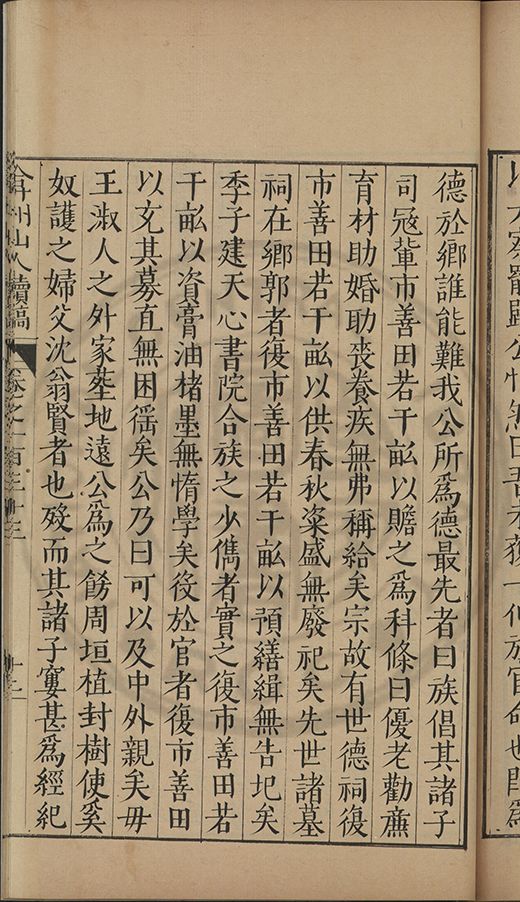 德於鄉誰能難我公所爲德最先者曰族倡其諸子
司㓂軰市善田若干畝以贍之爲科條曰優老勸廉
育材助婚助喪養疾無弗稱給矣宗故有世德祠復
市善田若干畝以供春秋粢盛無廢祀矣先世諸墓
祠在鄉郭者復市善田若干畝以預繕緝無告圮矣
季子建天心書院合族之少儁者實之復市善田若
干畝以資膏油楮墨無惰學矣役於官者復市善田
以充其募直無困徭矣公乃曰可以及中外親矣毋
王淑人之外家塟地遠公爲之餝周垣植封樹使奚
奴護之婦父沈翁賢者也歿而其諸子窶甚爲經紀
弇州山人續稿
卷之一百三十三
十三